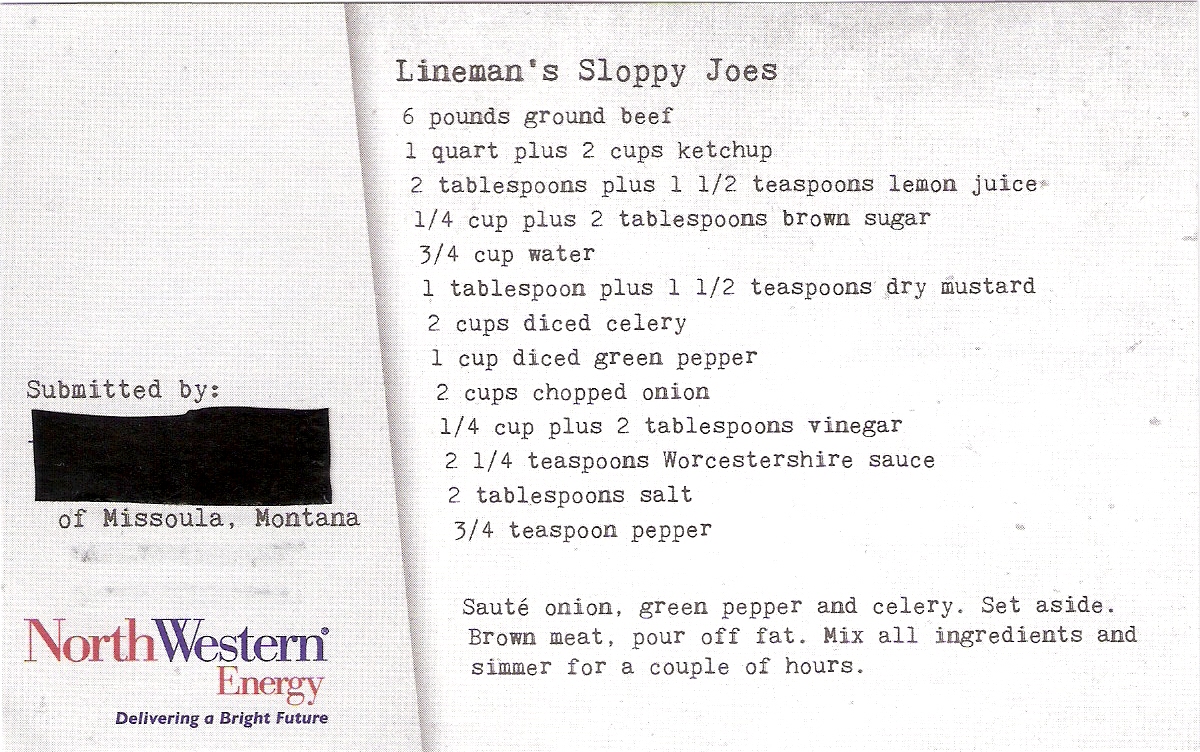 Lineman's Sloppy Joes
6 pounds ground beef
1 quart plus 2 cups ketchup
2 tablespoons plus 1 1/2 teaspoons lemon juice
1/4 cup plus 2 tablespoons brown sugar
3/4 cup water
1 tablespoon plus 1 1/2 teaspoons dry mustard
2 cups diced celery
1 cup diced green pepper
2 cups chopped onion
1/4 cup plus 2 tablespoons vinegar
2 1/4 teaspoons Worcestershire sauce
2 tablespoons salt
3/4 teaspoon pepper
Sauté onion, green pepper and celery. Set aside.
Brown meat, pour off fat. Mix all ingredients and
simmer for a couple of hours.
Submitted by:
of Missoula, Montana
NorthWestern®
Energy
Delivering a Bright Future